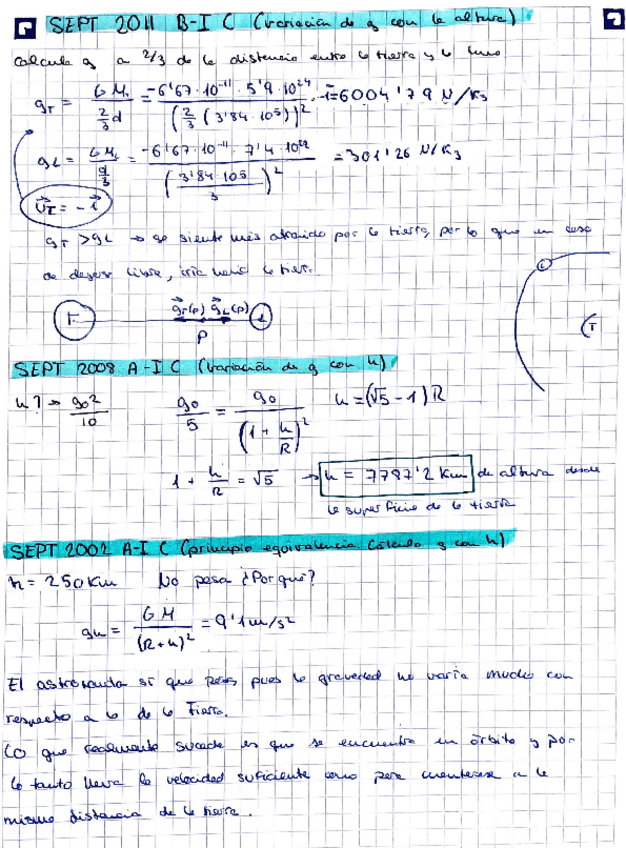 SEPT 2011 B-I C (variación de g con la altura)
calcula g a 2/3 de la distancia entre la tierra y la luna
gT = G MT / (2/3 d) = -6'67·10^-11 · 5'9·10^24 / (2/3 (3'84·10^5))^2 = 6004'79 N/Kg
gL = G ML / (d/3) = -6'67·10^-11 · 7'4·10^22 / (3'84·105 / 3)^2 = 301'26 N/Kg
= -i
gT > gL → se siente más atraido por la tierra, por lo que en caso
de dejarse libre, iría hacia la tierra.
T gT(p) gL(p) L
P
L
T
SEPT 2008 A-I C (variación de g con h)
h? → go / 10 go / 5 = go / (1 + h/R)^2 h = (√5 - 1) R
1 + h/R = √5 → h = 7787'2 Km de altura desde
la superficie de la tierra
SEPT 2002 A-I C (principio equivalencia Cálculo g con h)
h = 250 Km No pesa ¿Por qué?
gh = G M / (R+h)^2 = 9'1 m/s^2
El astronauta sí que pesa, pues la gravedad no varía mucho con
respecto a la de la Tierra.
Lo que realmente sucede es que se encuentra en órbita y por
lo tanto lleva la velocidad suficiente como para mantenerse a la
misma distancia de la tierra.